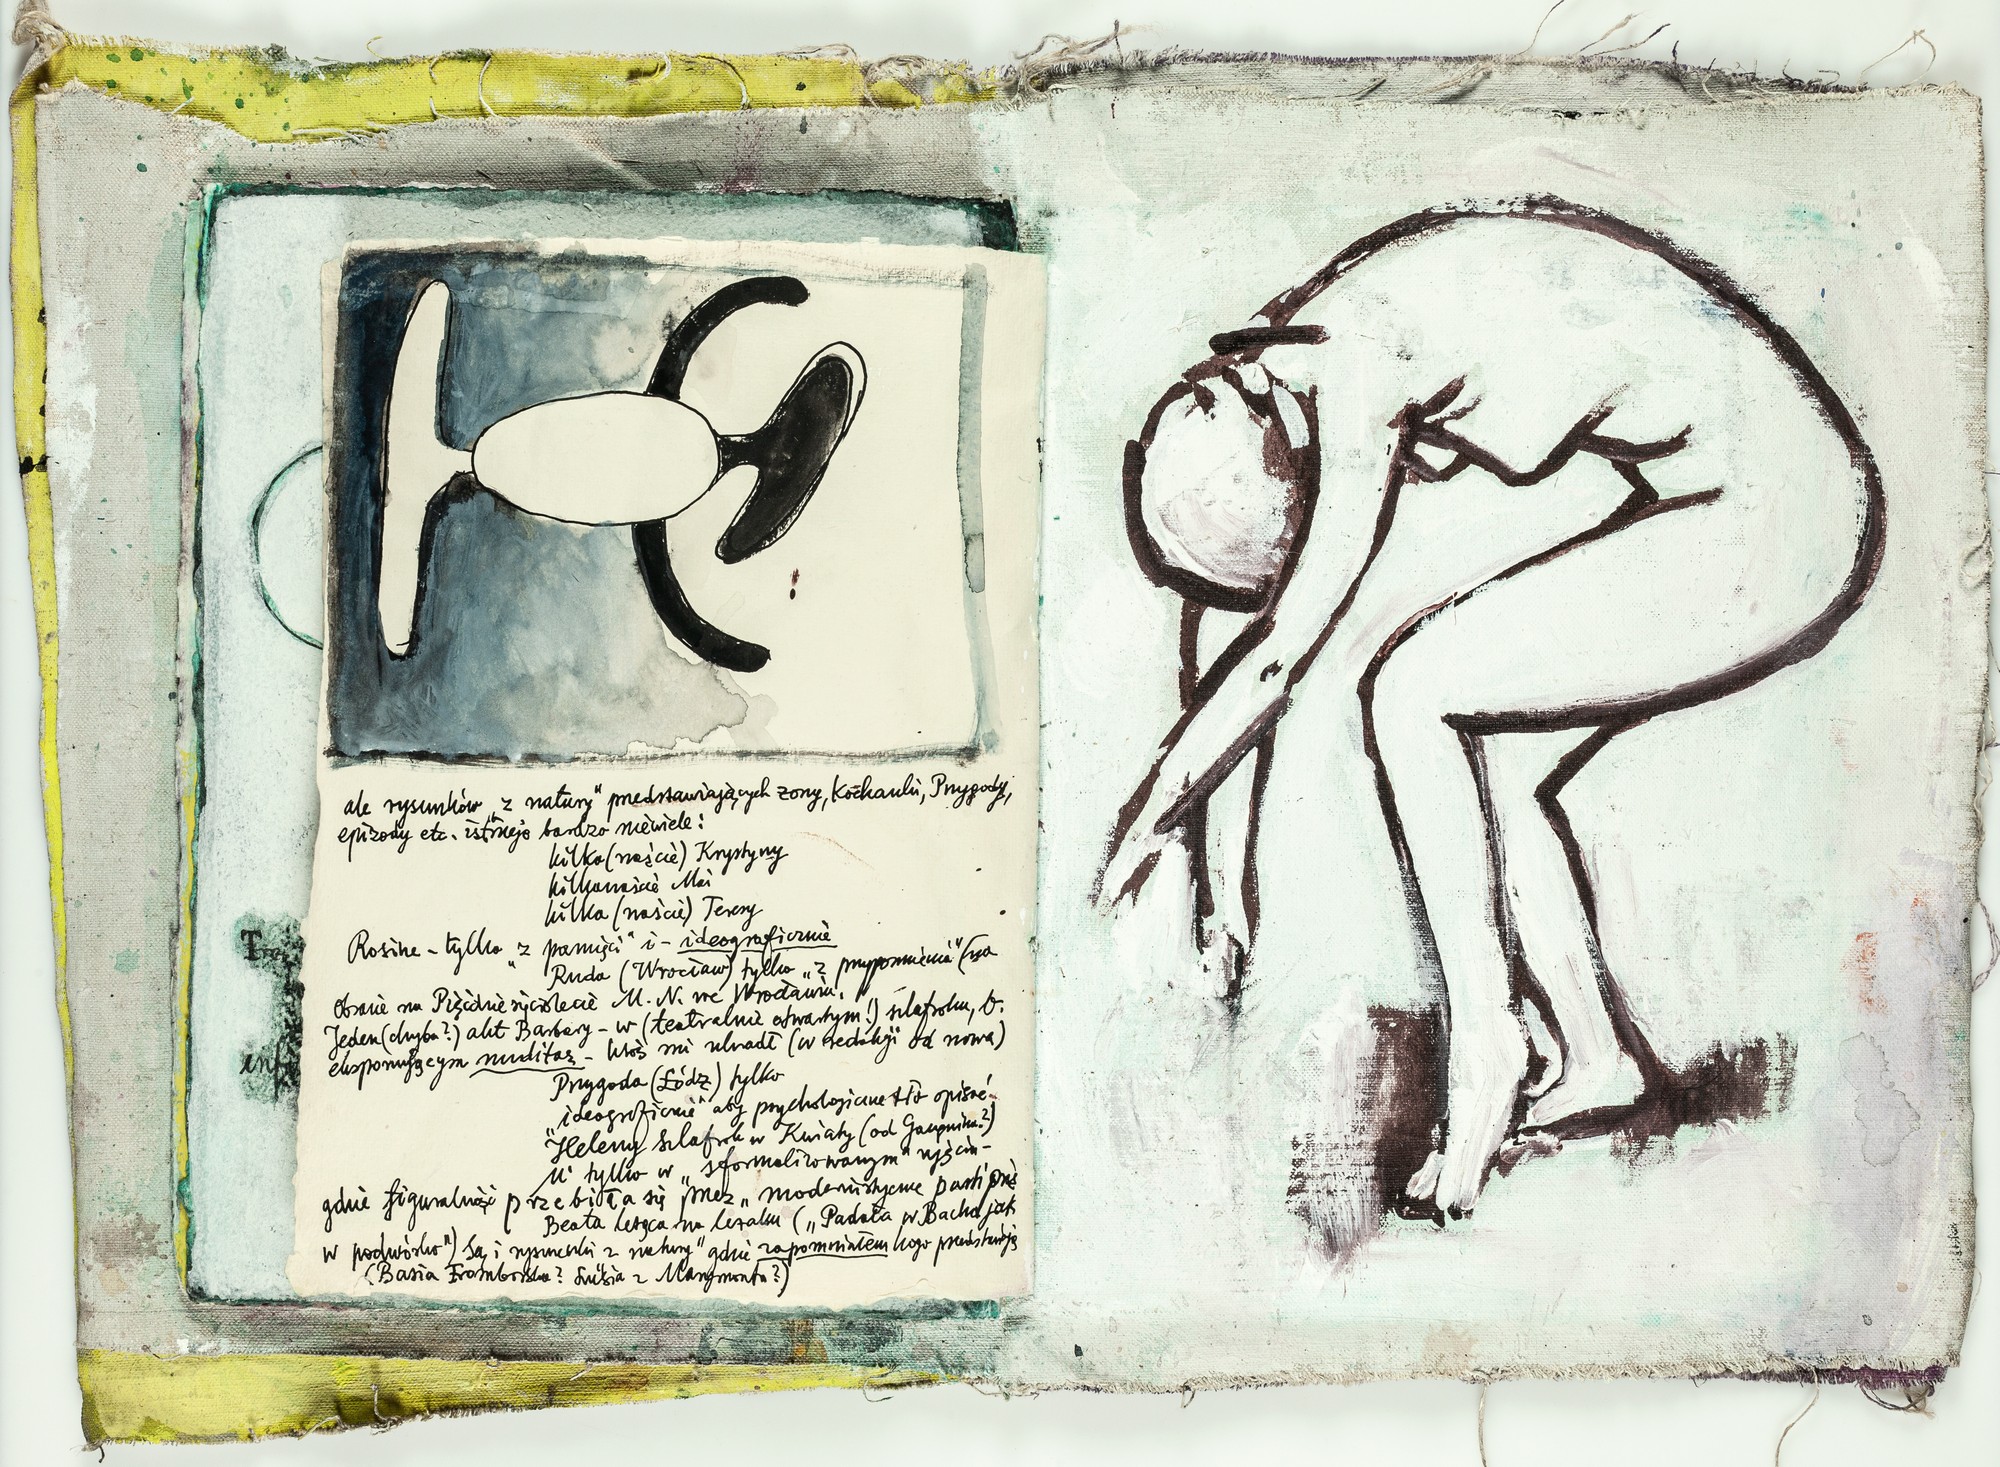 ale rysunków „z natury" predstawiających żony, Kochanki, Przygody,
epizody etc. istnieje bardzo niewiele:
kilka (naście) Krystyny
kilkanaście Mai
kilka (naście) Teresy
Rosine – tylko „z pamięci" i – ideograficznie
Ruda (Wrocław) tylko „z przypomnienia" (na
obrazie na Pięćdziesięciolecie M. N. we Wrocławiu.
Jeden (chyba?) akt Barbary – w (teatralnie otwartym!) szlafroku, b.
eksponującym nuditas – ktoś mi ukradł (w redakcji od nowa)
Przygoda (Łódź) tylko
„ideograficznie" aby psychologiczne tło opisać
Heleny szlafrok w Kwiaty (od
M' tylko w „sformalizowanym" ujęciu –
gdzie figuralność przebiła się przez „modernistyczne
Beata leżąca na leżaku („Padała w Bacha jak
w podwórko") Są i rysuneczki z natury" gdzie zapomniałem kogo przedstawiają
(Basia Fromborska? Zuzia z Marymontu?)